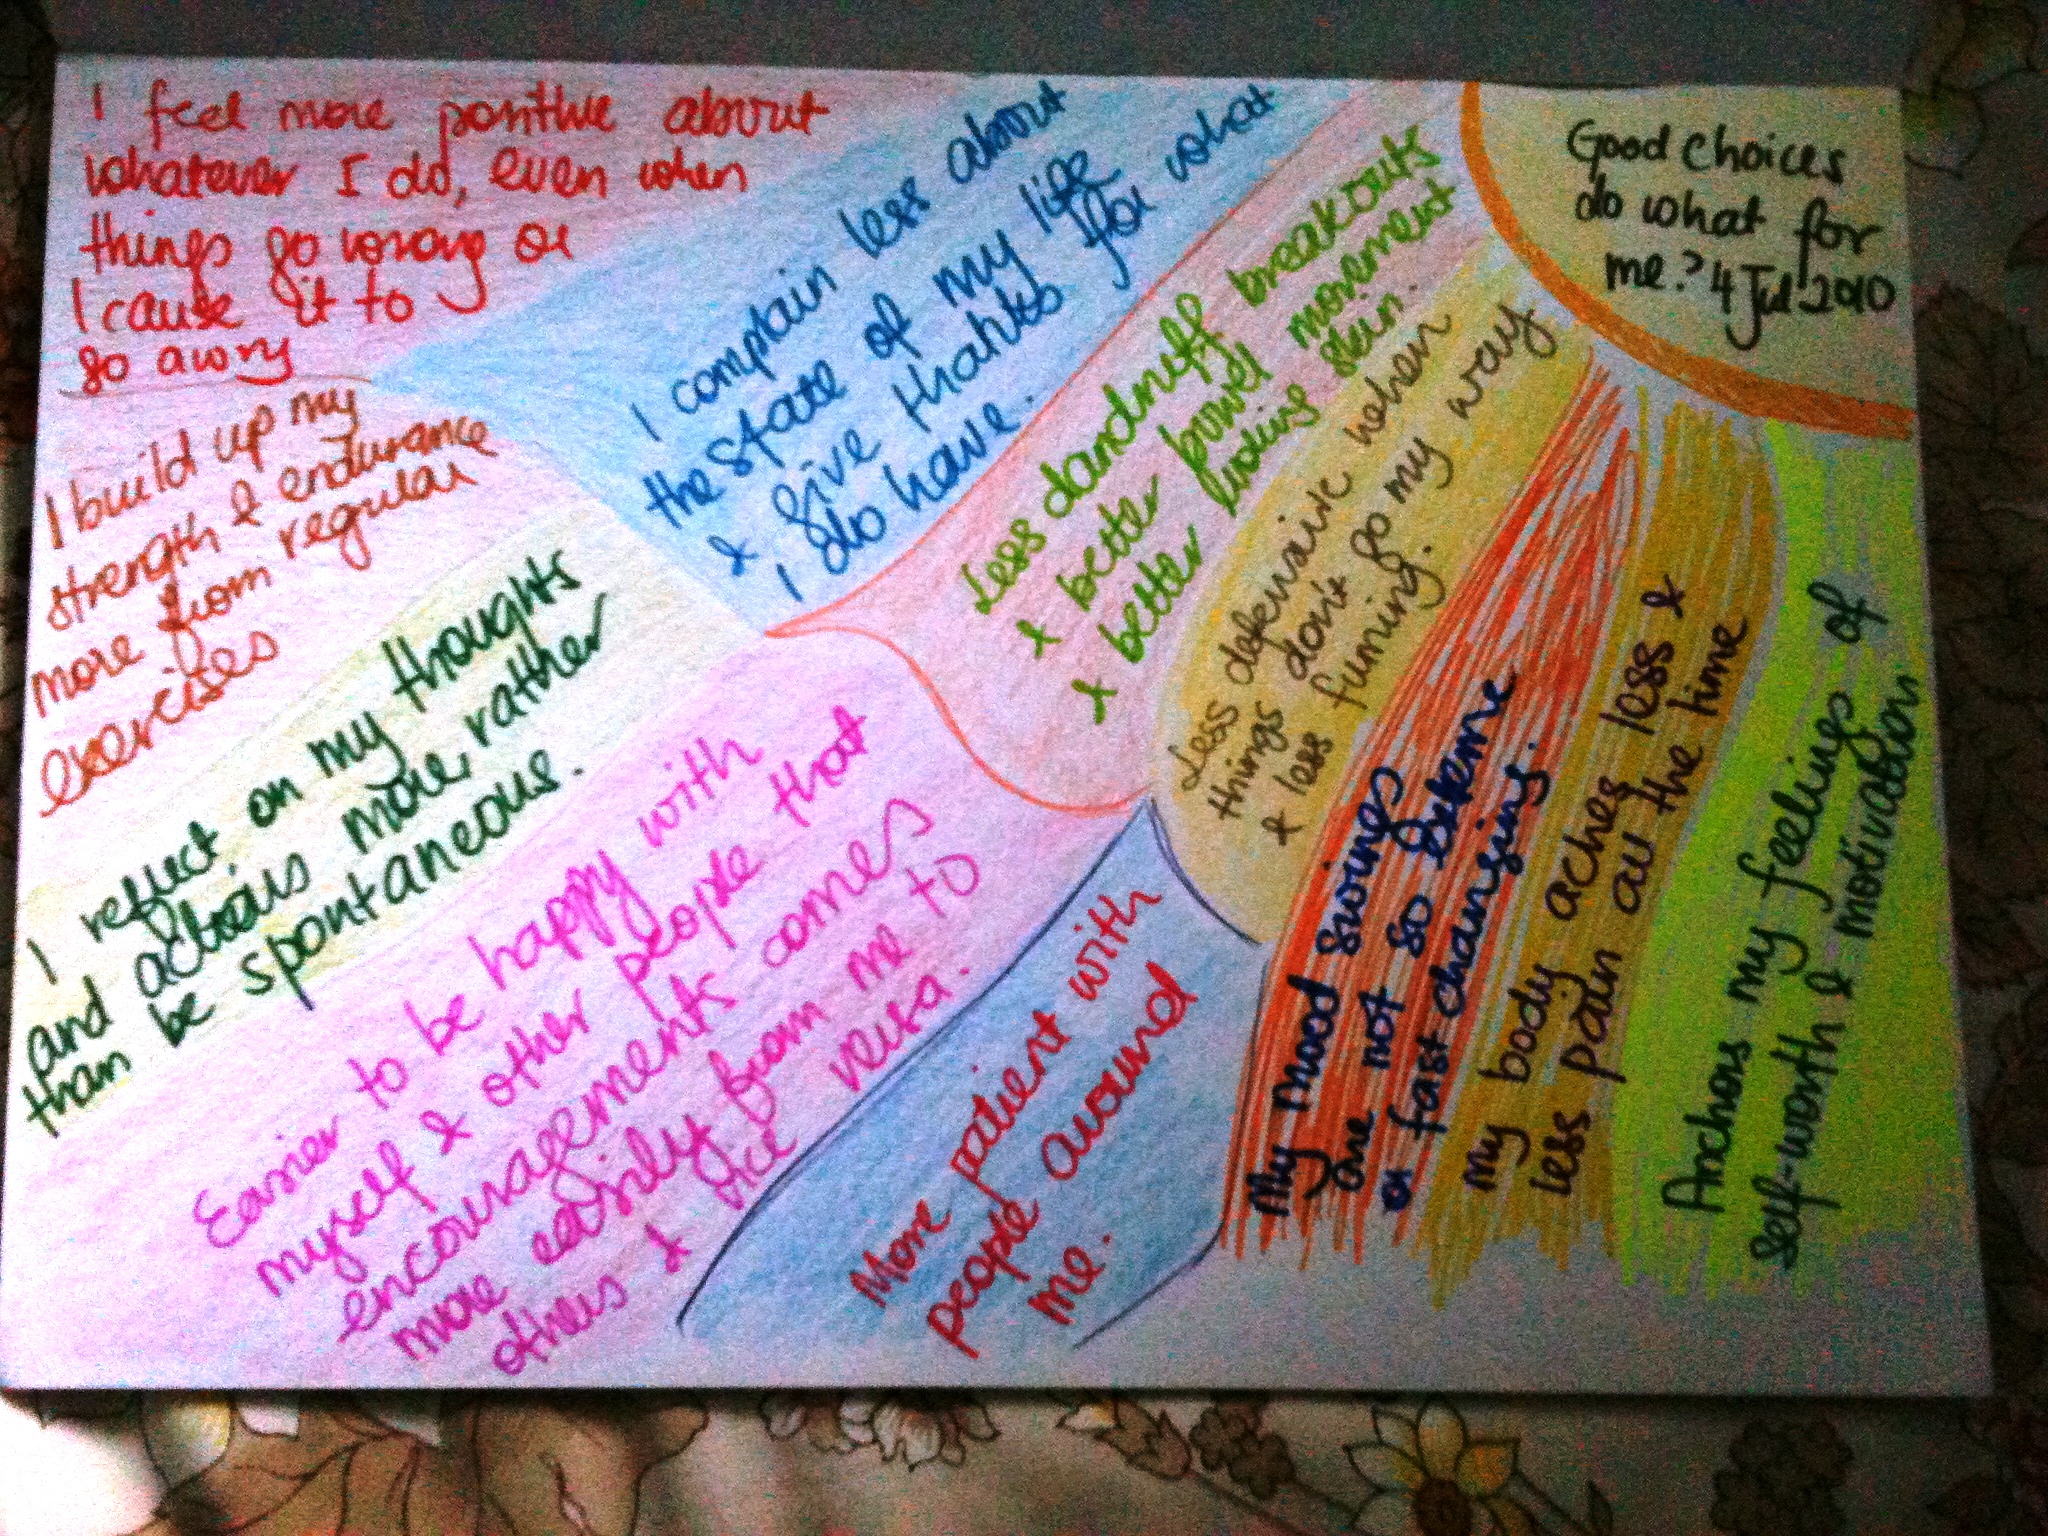 Good choices
do what for
me? 4 Jul 2010
I feel more positive about
whatever I do, even when
things go wrong or
I cause it to
go awry
I build up my
strength & endurance
more from regular
exercises
I reflect on my thoughts
and actions more, rather
than be spontaneous.
I complain less about
the state of my life
& give thanks for what
I do have.
Less dandruff, breakouts
& better bowel movement
& better looking skin.
Less defensive when
things don't go my way
& less fuming.
Easier to be happy with
myself & other people that
encouragements comes
more easily from me to
others & vice versa.
More patient with
people around
me.
My mood swings
are not so extreme
or fast changing.
My body aches less &
less pain all the time
Anchors my feelings of
self-worth & motivation